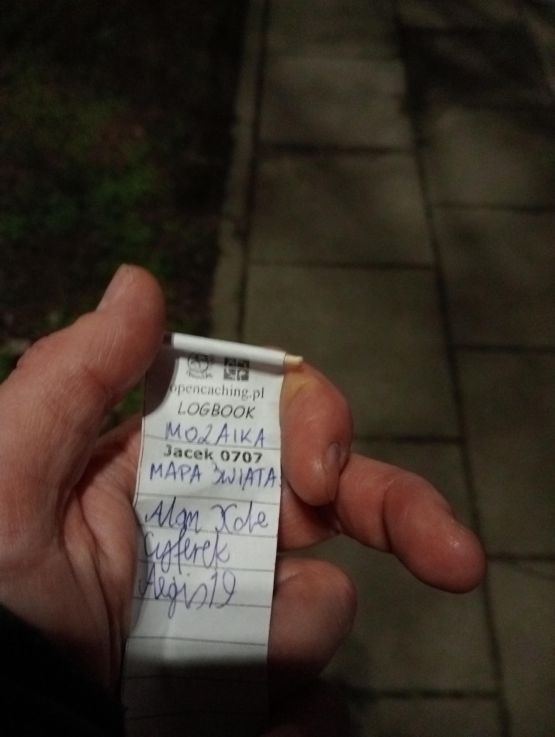 opencaching.pl
LOGBOOK
MOZAIKA
Jacek 0707
MAPA ŚWIATA
Cyferek
Aegis19